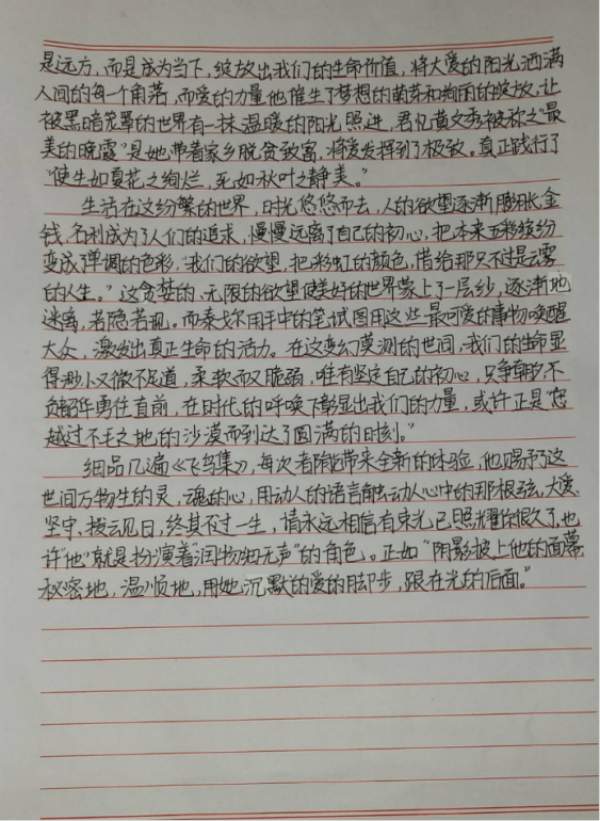 是远方，而是成为当下，绽放出我们的生命价值，将大爱的阳光洒满
人间的每一个角落，而爱的力量他催生了梦想的萌芽和绚丽的绽放，让
被黑暗笼罩的世界有一抹温暖的阳光照进，君忆黄文秀被称之"最
美的晚霞"是她带着家乡脱贫致富，将爱发挥到了极致。真正践行了
"使生如夏花之绚烂，死如秋叶之静美。"
生活在这纷繁的世界，时光悠悠而去，人的欲望逐渐膨胀，金
钱，名利成为了人们的追求，慢慢远离了自己的初心，把本来五彩缤纷
变成了单调的色彩，"我们的欲望，把彩虹的颜色，借给那只不过是云雾
的人生。"这贪婪的，无限的欲望使美好的世界蒙上了一层纱，逐渐地
迷离，若隐若现。而泰戈尔用手中的笔试图用这些最可爱的事物唤醒
大众，激发出真正生命的活力。在这变幻莫测的世间，我们的生命显
得渺小又微不足道，柔软而又脆弱，唯有坚定自己的初心，只争朝夕，不
负韶华勇往直前，在时代的呼唤下彰显出我们的力量，或许正是"您
越过不毛之地的沙漠而到达了圆满的时刻。"
细品几遍《飞鸟集》，每次都能带来全新的体验，他赐予了这
世间万物生的灵，魂的心，用动人的语言触动人心中的那根弦，大爱
坚守，拨云见日，终其不过一生，请永远相信有束光已照耀你很久了，也
许"他"就是扮演着"润物细无声"的角色。正如"阴影披上他的面幕
秘密地，温顺地，用她沉默的爱的脚步，跟在光的后面。"